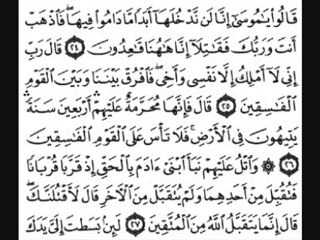 قَالُوا۟ يَٰمُوسَىٰٓ إِنَّا لَن نَّدْخُلَهَآ أَبَدًا مَّا دَامُوا۟ فِيهَا ۖ فَٱذْهَبْ
أَنتَ وَرَبُّكَ فَقَٰتِلَآ إِنَّا هَٰهُنَا قَٰعِدُونَ ٢٤ قَالَ رَبِّ
إِنِّى لَآ أَمْلِكُ إِلَّا نَفْسِى وَأَخِى ۖ فَٱفْرُقْ بَيْنَنَا وَبَيْنَ ٱلْقَوْمِ
ٱلْفَٰسِقِينَ ٢٥ قَالَ فَإِنَّهَا مُحَرَّمَةٌ عَلَيْهِمْ ۛ أَرْبَعِينَ سَنَةً ۛ
يَتِيهُونَ فِى ٱلْأَرْضِ ۚ فَلَا تَأْسَ عَلَى ٱلْقَوْمِ ٱلْفَٰسِقِينَ
٢٦ ۞ وَٱتْلُ عَلَيْهِمْ نَبَأَ ٱبْنَىْ ءَادَمَ بِٱلْحَقِّ إِذْ قَرَّبَا قُرْبَانًا
فَتُقُبِّلَ مِنْ أَحَدِهِمَا وَلَمْ يُتَقَبَّلْ مِنَ ٱلْءَاخَرِ قَالَ لَأَقْتُلَنَّكَ ۖ
قَالَ إِنَّمَا يَتَقَبَّلُ ٱللَّهُ مِنَ ٱلْمُتَّقِينَ ٢٧ لَئِنۢ بَسَطتَ إِلَىَّ يَدَكَ